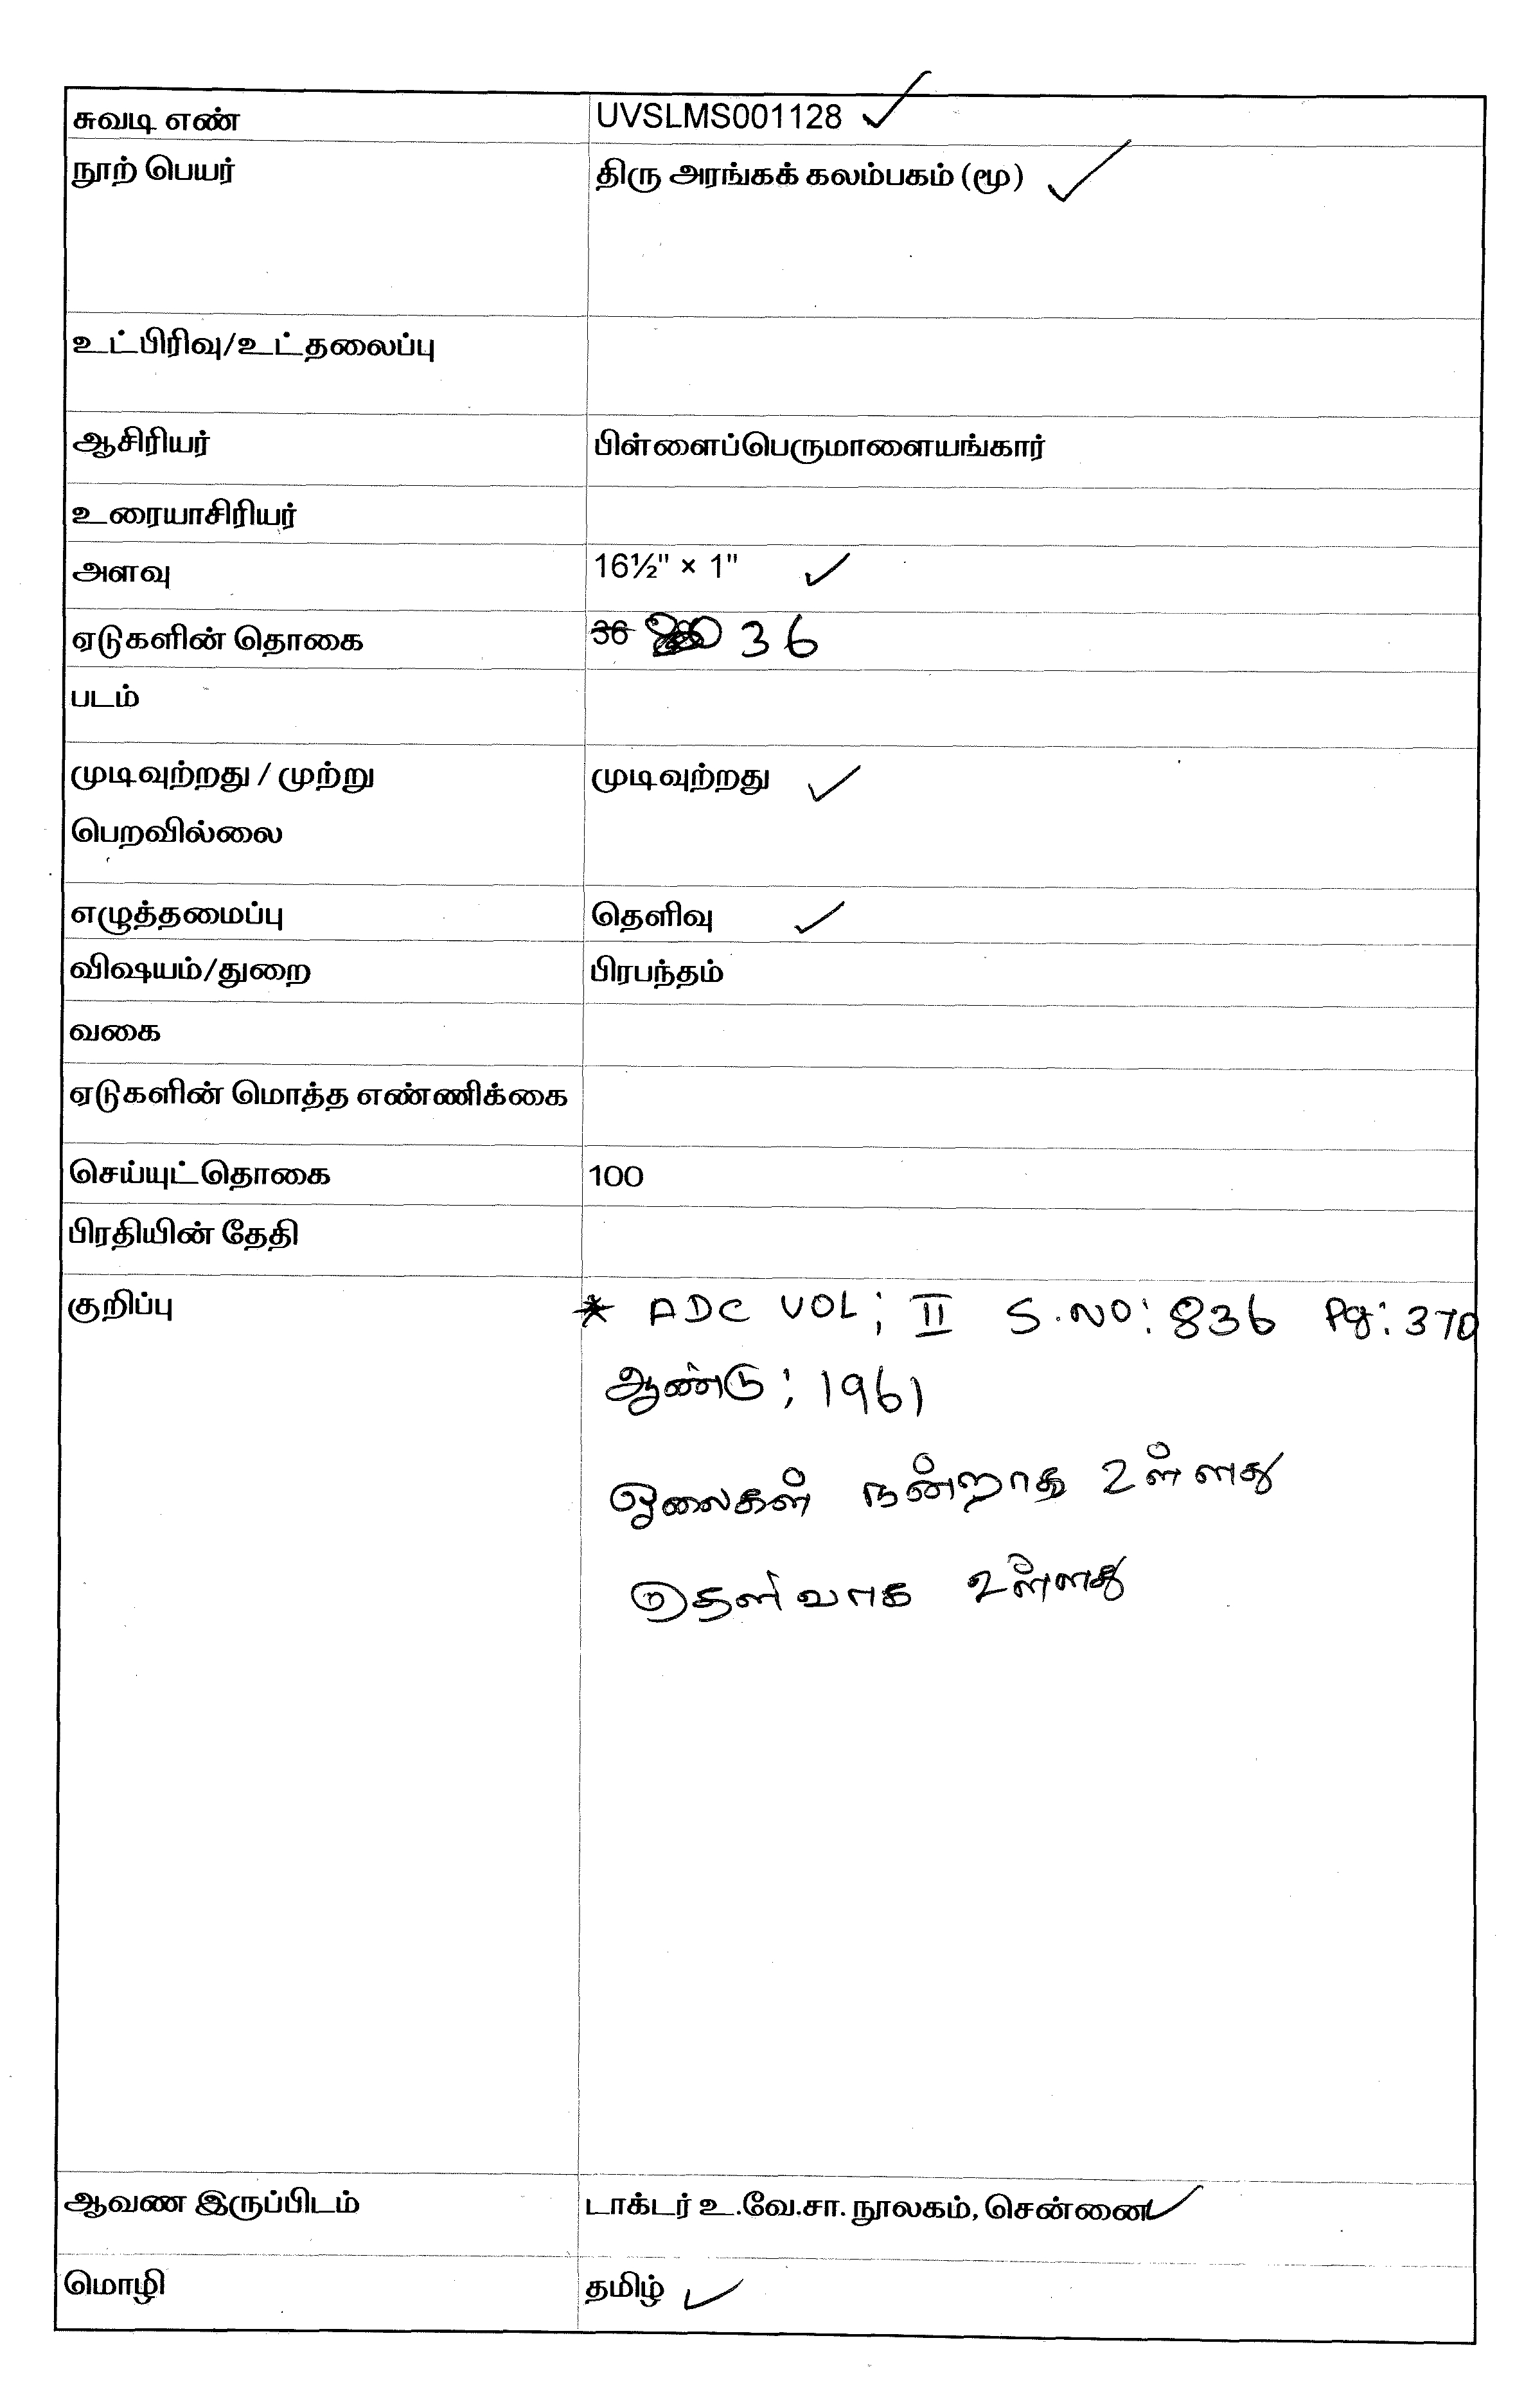 சுவடி எண் UVSLMS001128
நூற் பெயர் திரு அரங்கக் கலம்பகம் (மூ)
உட்பிரிவு/உட்தலைப்பு
ஆசிரியர் பிள்ளைப்பெருமாளையங்கார்
உரையாசிரியர்
அளவு 16½" × 1"
ஏடுகளின் தொகை 36 36
படம்
முடிவுற்றது / முற்று முடிவுற்றது
பெறவில்லை
எழுத்தமைப்பு தெளிவு
விஷயம்/துறை பிரபந்தம்
வகை
ஏடுகளின் மொத்த எண்ணிக்கை
செய்யுட்தொகை 100
பிரதியின் தேதி
குறிப்பு * ADC VOL; II S.NO: 836 Pg: 370
ஆண்டு; 1961
ஓலைகள் நன்றாக உள்ளது
தெளிவாக உள்ளது
ஆவண இருப்பிடம் டாக்டர் உ.வே.சா. நூலகம், சென்னை
மொழி தமிழ்